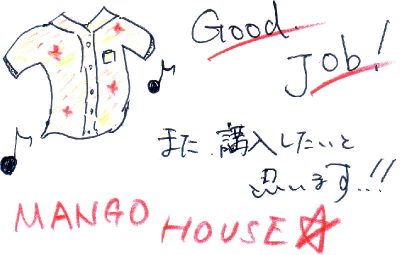 Good
Job!
また 購入したいと
思います!!
MANGO HOUSE☆